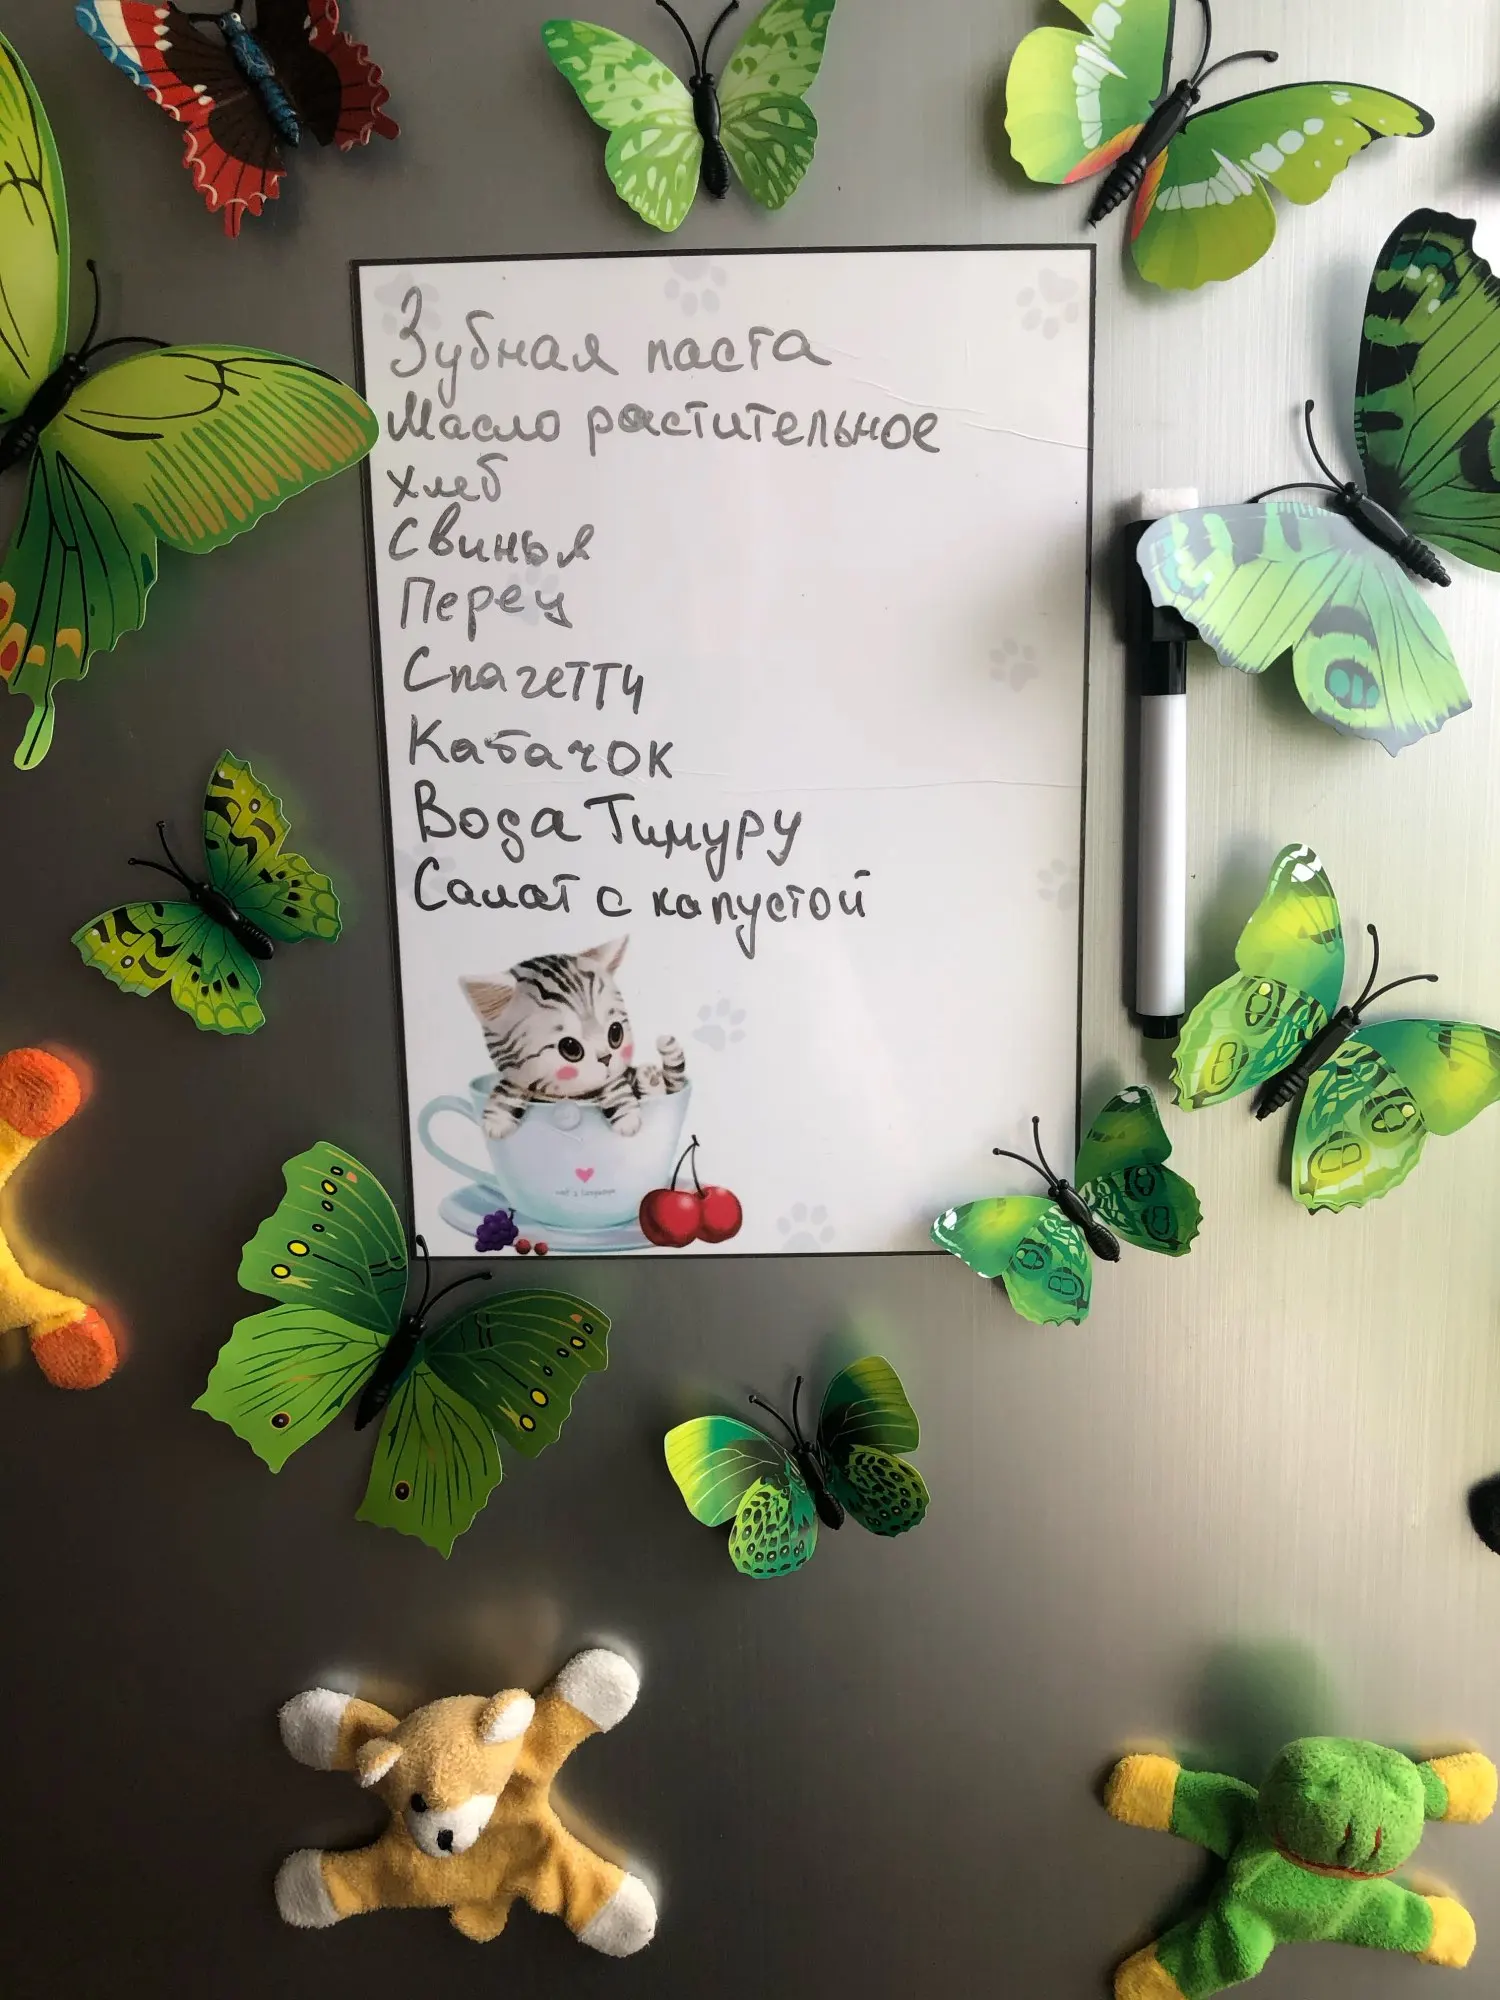 Зубная паста
Масло растительное
хлеб
Свинья
Перец
Спагетти
Кабачок
Вода Тимуру
Салат с капустой